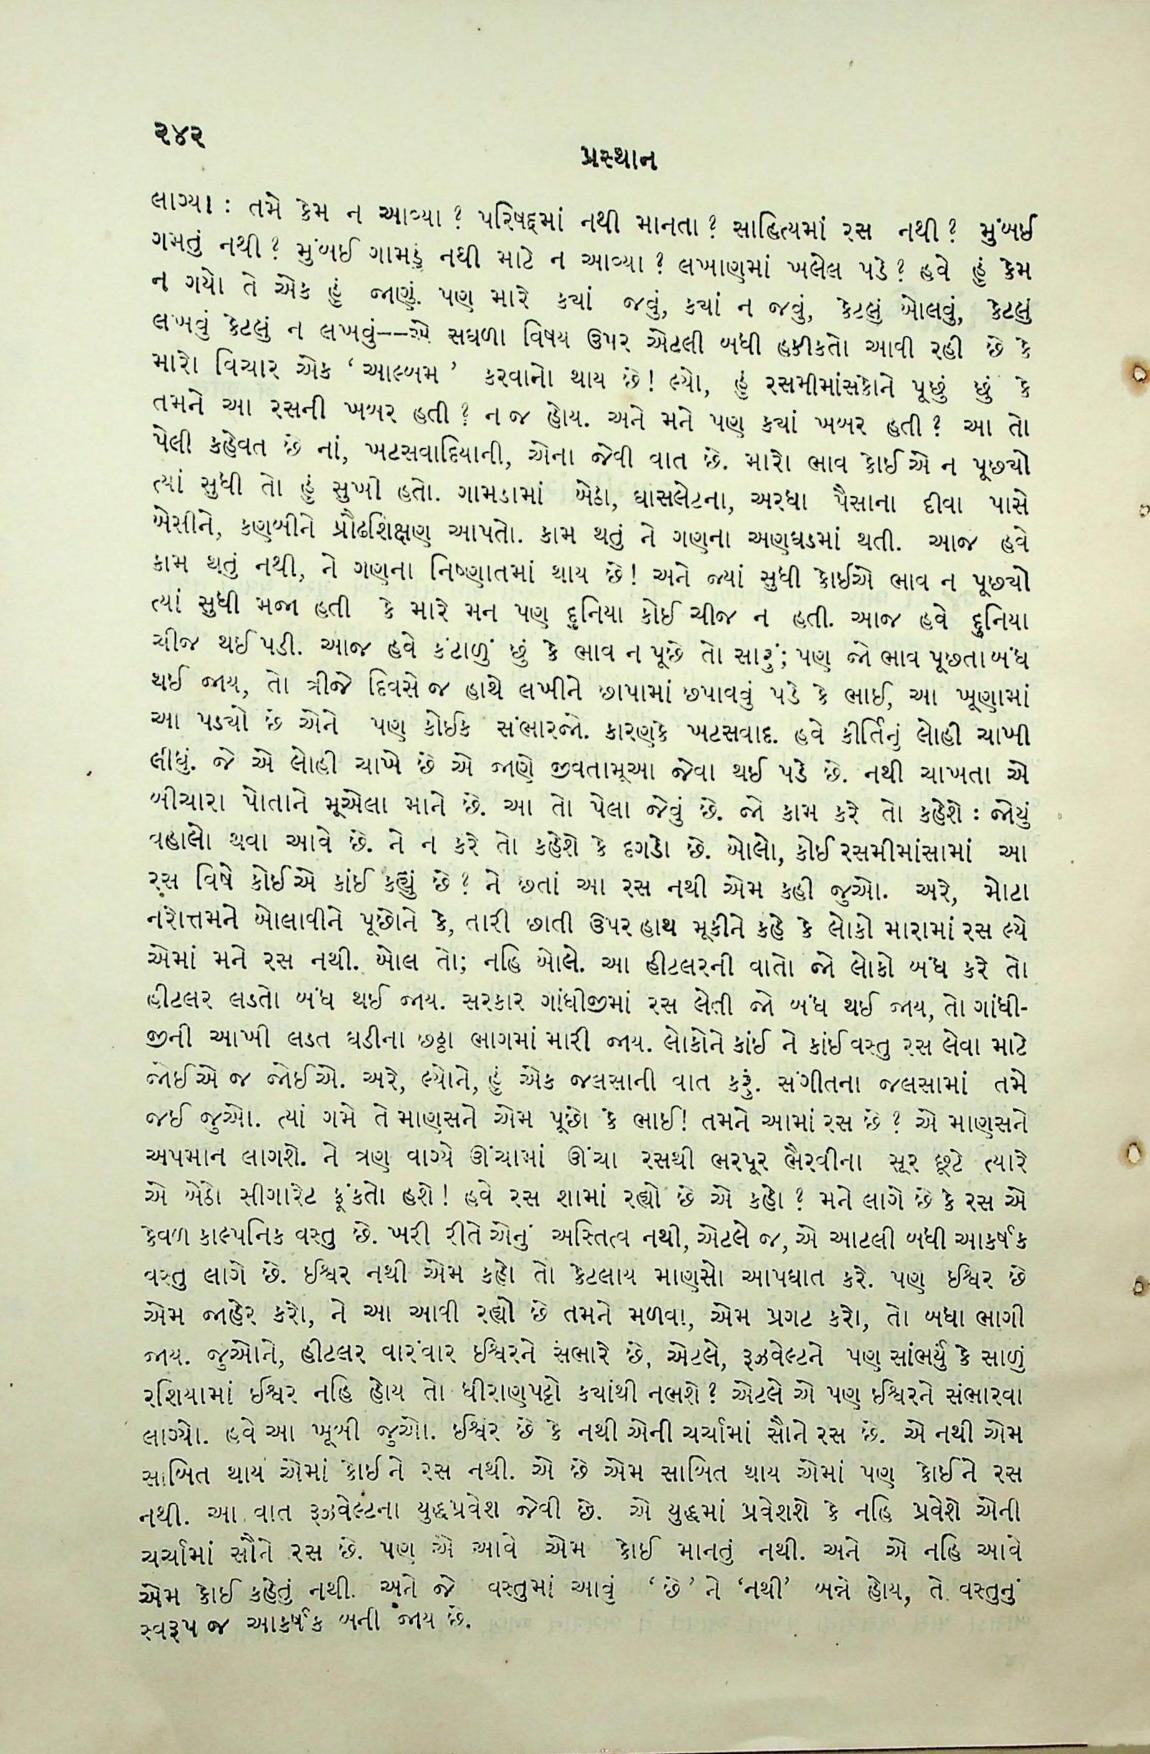 ૨૪૨
પ્રસ્થાન
લાગ્યા : તમે કેમ ન આવ્યા ? પરિષદ્દમાં નથી માનતા ? સાહિત્યમાં રસ નથી ? મુંબઈ
ગમતું નથી ? મુંબઈ ગામડું નથી માટે ન આવ્યા ? લખાણમાં ખલેલ પડે ? હવે હું કેમ
ન ગયો તે એક હું જાણું. પણ મારે ક્યાં જવું, ક્યાં ન જવું, કેટલું બોલવું, કેટલું
લખવું કેટલું ન લખવું--એ સઘળા વિષય ઉપર એટલી બધી હકીકતો આવી રહી છે કે
મારો વિચાર એક ‘ આલ્બમ ’ કરવાનો થાય છે ! લ્યો, હું રસમીમાંસકોને પૂછું છું કે
તમને આ રસની ખબર હતી ? ન જ હોય. અને મને પણ ક્યાં ખબર હતી ? આ તો
પેલી કહેવત છે નાં, ખટસવાદિયાની, એના જેવી વાત છે. મારો ભાવ કોઈએ ન પૂછ્યો
ત્યાં સુધી તો હું સુખી હતો. ગામડામાં બેઠો, ઘાસલેટના, અરધા પૈસાના દીવા પાસે
બેસીને, કણબીને પ્રૌઢશિક્ષણ આપતો. કામ થતું ને ગણના અણઘડમાં થતી. આજ હવે
કામ થતું નથી, ને ગણના નિષ્ણાતમાં થાય છે ! અને જ્યાં સુધી કોઈએ ભાવ ન પૂછ્યો
ત્યાં સુધી મજા હતી કે મારે મન પણ દુનિયા કોઈ ચીજ ન હતી. આજ હવે દુનિયા
ચીજ થઈ પડી. આજ હવે કંટાળું છું કે ભાવ ન પૂછે તો સારું; પણ જો ભાવ પૂછતા બંધ
થઈ જાય, તો ત્રીજે દિવસે જ હાથે લખીને છાપામાં છપાવવું પડે કે ભાઈ, આ ખૂણામાં
આ પડ્યો છે એને પણ કોઈક સંભારજો. કારણકે ખટસવાદ. હવે કીર્તિનું લોહી ચાખી
લીધું. જે એ લોહી ચાખે છે એ જાણે જીવતામૂઆ જેવા થઈ પડે છે. નથી ચાખતા એ
બીચારા પોતાને મૂએલા માને છે. આ તો પેલા જેવું છે. જો કામ કરે તો કહેશે : જોયું
વ્હાલો થવા આવે છે. ને ન કરે તો કહેશે કે દગડો છે. બોલો, કોઈ રસમીમાંસામાં આ
રસ વિષે કોઈએ કાંઈ કહ્યું છે ? ને છતાં આ રસ નથી એમ કહી જુઓ. અરે, મોટા
નરોત્તમને બોલાવીને પૂછોને કે, તારી છાતી ઉપર હાથ મૂકીને કહે કે લોકો મારામાં રસ લ્યે
એમાં મને રસ નથી. બોલ તો; નહિ બોલે. આ હીટલરની વાતો જો લોકો બંધ કરે તો
હીટલર લડતો બંધ થઈ જાય. સરકાર ગાંધીજીમાં રસ લેતી જો બંધ થઈ જાય, તો ગાંધી-
જીની આખી લડત ઘડીના છઠ્ઠા ભાગમાં મારી જાય. લોકોને કાંઈ ને કાંઈ વસ્તુ રસ લેવા માટે
જોઈએ જ જોઈએ. અરે, લ્યોને, હું એક જલસાની વાત કરું. સંગીતના જલસામાં તમે
જઈ જુઓ. ત્યાં ગમે તે માણસને એમ પૂછો કે ભાઈ! તમને આમાં રસ છે ? એ માણસને
અપમાન લાગશે. ને ત્રણ વાગ્યે ઊંચામાં ઊંચા રસથી ભરપૂર ભૈરવીના સૂર છૂટે ત્યારે
એ બેઠો સીગારેટ ફૂંકતો હશે ! હવે રસ શામાં રહ્યો છે એ કહો ? મને લાગે છે કે રસ એ
કેવળ કાલ્પનિક વસ્તુ છે. ખરી રીતે એનું અસ્તિત્વ નથી, એટલે જ, એ આટલી બધી આકર્ષક
વસ્તુ લાગે છે. ઈશ્વર નથી એમ કહો તો કેટલાય માણસો આપઘાત કરે. પણ ઈશ્વર છે
એમ જાહેર કરો, ને આ આવી રહ્યો છે તમને મળવા, એમ પ્રગટ કરો, તો બધા ભાગી
જાય. જુઓને, હીટલર વારંવાર ઈશ્વરને સંભારે છે, એટલે, રૂઝવેલ્ટને પણ સાંભર્યું કે સાળું
રશિયામાં ઈશ્વર નહિ હોય તો ધીરાણપટ્ટો ક્યાંથી નભશે ? એટલે એ પણ ઈશ્વરને સંભારવા
લાગ્યો. હવે આ ખૂબી જુઓ. ઈશ્વર છે કે નથી એની ચર્ચામાં સૌને રસ છે. એ નથી એમ
સાબિત થાય એમાં કોઈને રસ નથી. એ છે એમ સાબિત થાય એમાં પણ કોઈને રસ
નથી. આ વાત રૂઝવેલ્ટના યુદ્ધપ્રવેશ જેવી છે. એ યુદ્ધમાં પ્રવેશશે કે નહિ પ્રવેશે એની
ચર્ચામાં સૌને રસ છે. પણ એ આવે એમ કોઈ માનતું નથી. અને એ નહિ આવે
એમ કોઈ કહેતું નથી. અને જે વસ્તુમાં આવું ‘ છે ’ ને ‘નથી’ બન્ને હોય, તે વસ્તુનું
સ્વરૂપ જ આકર્ષક બની જાય છે.